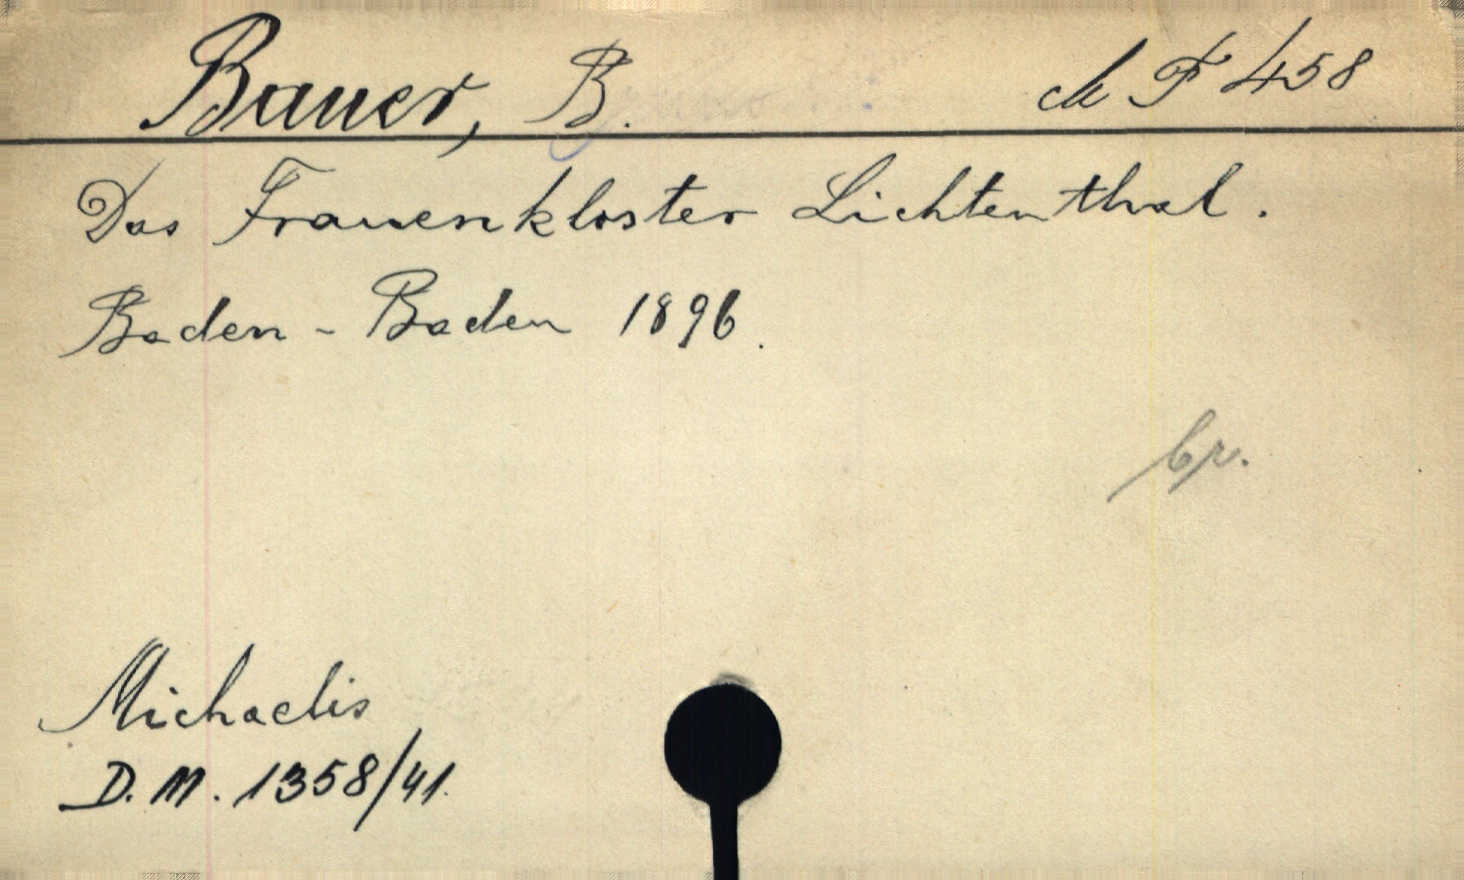 Bauer, B. ch F 458
Das Frauenkloster Lichtenthal.
Baden-Baden 1896.
br.
Michaelis
D.M. 1358/41.